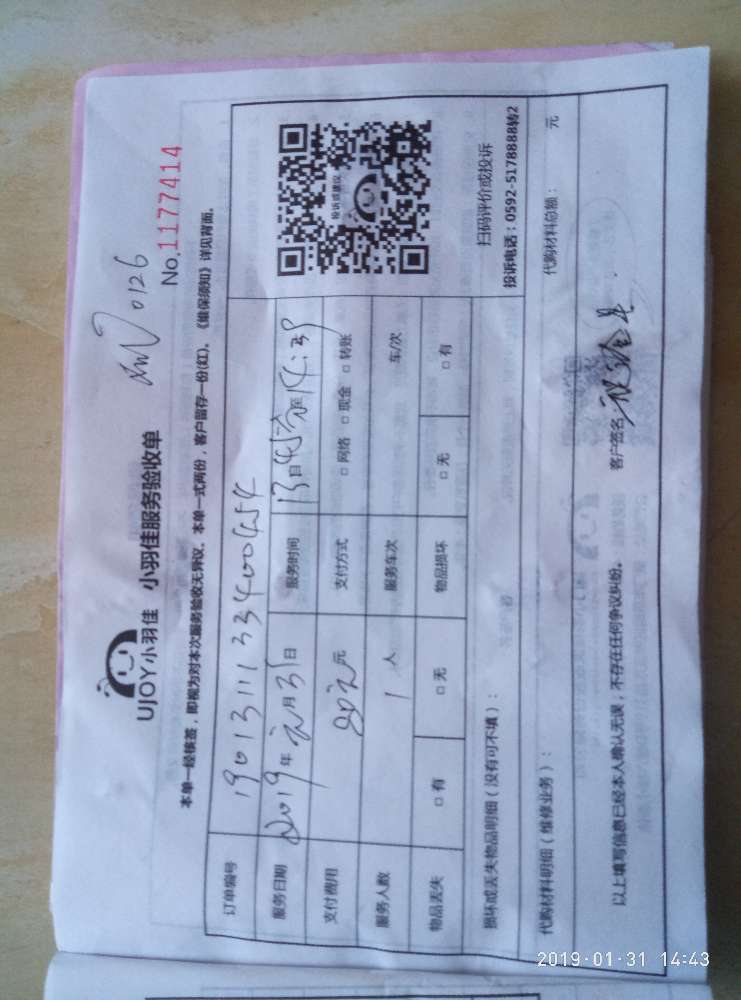 0126
No.1177414
UJOY小羽佳 小羽佳服务验收单
本单一经核签，即视为对本次服务验收无异议。本单一式两份，客户留存一份(红)。《维保须知》详见背面。
订单编号 1901311133400454
服务日期 2019年 元月31日 服务时间 13日45分至14:39
支付费用 元 支付方式 □网络 □现金 □转账
服务人数 1人 服务车次 车/次
物品丢失 □有 □无 物品损坏 □无 □有
投诉或建议
扫码评价或投诉
投诉电话：0592-5178888转2
损坏或丢失物品明细（没有可不填）：
代购材料明细（维修业务）： 代购材料总额： 元
以上填写信息已经本人确认无误，不存在任何争议纠纷。 客户签名
2019-01-31 14:43